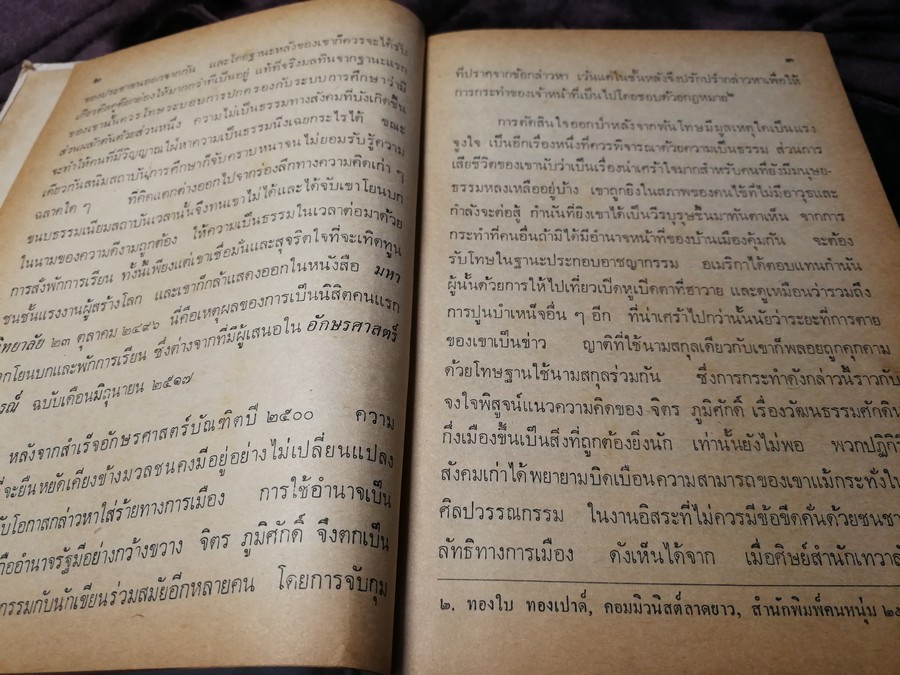 ๒
ของประชาชนออกจากกัน และโดยฐานะหลังของเขาก็ควรจะได้รับ
เกียรติศักดิ์ของให้มากกว่าที่เป็นอยู่ แท้ที่จริงมลทินจากฐานะแรก
ของเขานั้นควรโทษระบอบการปกครองกับระบบการศึกษาว่ามี
ส่วนผลักดันด้วยส่วนหนึ่ง ความไม่เป็นธรรมทางสังคมที่บังเกิดขึ้น
จะทำให้คนที่มีวิญญาณไม่หาความเป็นธรรมนึ่งเฉยกระไรได้ ขณะ
เดียวกันสนิมสถาบันการศึกษาก็จับคราบหนาจนไม่ยอมรับรู้ความ
ฉลาดใด ๆ ที่คิดแตกต่างออกไปจากร่องลึกทางความคิดเก่า ๆ
ขนบธรรมเนียมสถาบันเวลานั้นจึงทนเขาไม่ได้และได้จับเขาโยนบก
ในนามของความดีงามถูกต้อง ให้ความเป็นธรรมในเวลาต่อมาด้วย
การสั่งพักการเรียน ทั้งนี้เพียงแต่เขาเชื่อมั่นและสุจริตใจที่จะเทิดทูน
ชนชั้นแรงงานผู้สร้างโลก และเขาก็กล้าแสดงออกในหนังสือ มหา
วิทยาลัย ๒๓ ตุลาคม ๒๔๙๖ นี่คือเหตุผลของการเป็นนิสิตคนแรก
ถูกโยนบกและพักการเรียน ซึ่งต่างจากที่มีผู้เสนอใน อักษรศาสตร์
ฉบับเดือนมิถุนายน ๒๕๑๗
หลังจากสำเร็จอักษรศาสตร์บัณฑิตปี ๒๕๐๐ ความ
ที่จะยืนหยัดเคียงข้างมวลชนคงมีอยู่อย่างไม่เปลี่ยนแปลง
โอกาสกล่าวหาใส่ร้ายทางการเมือง การใช้อำนาจเป็น
ถืออำนาจรัฐมีอย่างกว้างขวาง จิตร ภูมิศักดิ์ จึงตกเป็น
กรรมกับนักเขียนร่วมสมัยอีกหลายคน โดยการจับกุม
๓
ที่ปราศจากข้อกล่าวหา เว้นแต่ในชั้นหลังจึงปรักปรำกล่าวหาเพื่อให้
การกระทำของเจ้าหน้าที่เป็นไปโดยชอบด้วยกฎหมาย๒
การตัดสินใจออกป่าหลังจากพ้นโทษมีมูลเหตุใดเป็นแรง
จูงใจ เป็นอีกเรื่องหนึ่งที่ควรพิจารณาด้วยความเป็นธรรม ส่วนการ
เสียชีวิตของเขานับว่าเป็นเรื่องน่าเศร้าใจมากสำหรับคนที่ยังมีมนุษย-
ธรรมหลงเหลืออยู่บ้าง เขาถูกยิงในสภาพของคนไร้ที่ไม่มีอาวุธและ
กำลังจะต่อสู้ กำนันที่ยิงเขาได้เป็นวีรบุรุษขึ้นมาทันตาเห็น จากการ
กระทำที่คนอื่นถ้ามิได้มีอำนาจหน้าที่ของบ้านเมืองคุ้มกัน จะต้อง
รับโทษในฐานะประกอบอาชญากรรม อเมริกาได้ตอบแทนกำนัน
ผู้นั้นด้วยการให้ไปเที่ยวเปิดหูเปิดตาที่ฮาวาย และดูเหมือนว่ารวมถึง
การปูนบำเหน็จอื่น ๆ อีก ที่น่าเศร้าไปกว่านั้นนัยว่าระยะที่การตาย
ของเขาเป็นข่าว ญาติที่ใช้นามสกุลเดียวกับเขาก็พลอยถูกคุกคาม
ด้วยโทษฐานใช้นามสกุลร่วมกัน ซึ่งการกระทำดังกล่าวนี้ราวกับ
จงใจพิสูจน์แนวความคิดของ จิตร ภูมิศักดิ์ เรื่องวัฒนธรรมศักดินา
กึ่งเมืองขึ้นเป็นสิ่งที่ถูกต้องยิ่งนัก เท่านั้นยังไม่พอ พวกปฏิกิริ
สังคมเก่าได้พยายามบิดเบือนความสามารถของเขาแม้กระทั่งใน
ศิลปวรรณกรรม ในงานอิสระที่ไม่ควรมีข้อขีดคั่นด้วยชนชา
ลัทธิทางการเมือง ดังเห็นได้จาก เมื่อศิษย์สำนักเทวาลั
๒. ทองใบ ทองเปาด์, คอมมิวนิสต์ลาดยาว, สำนักพิมพ์คนหนุ่ม